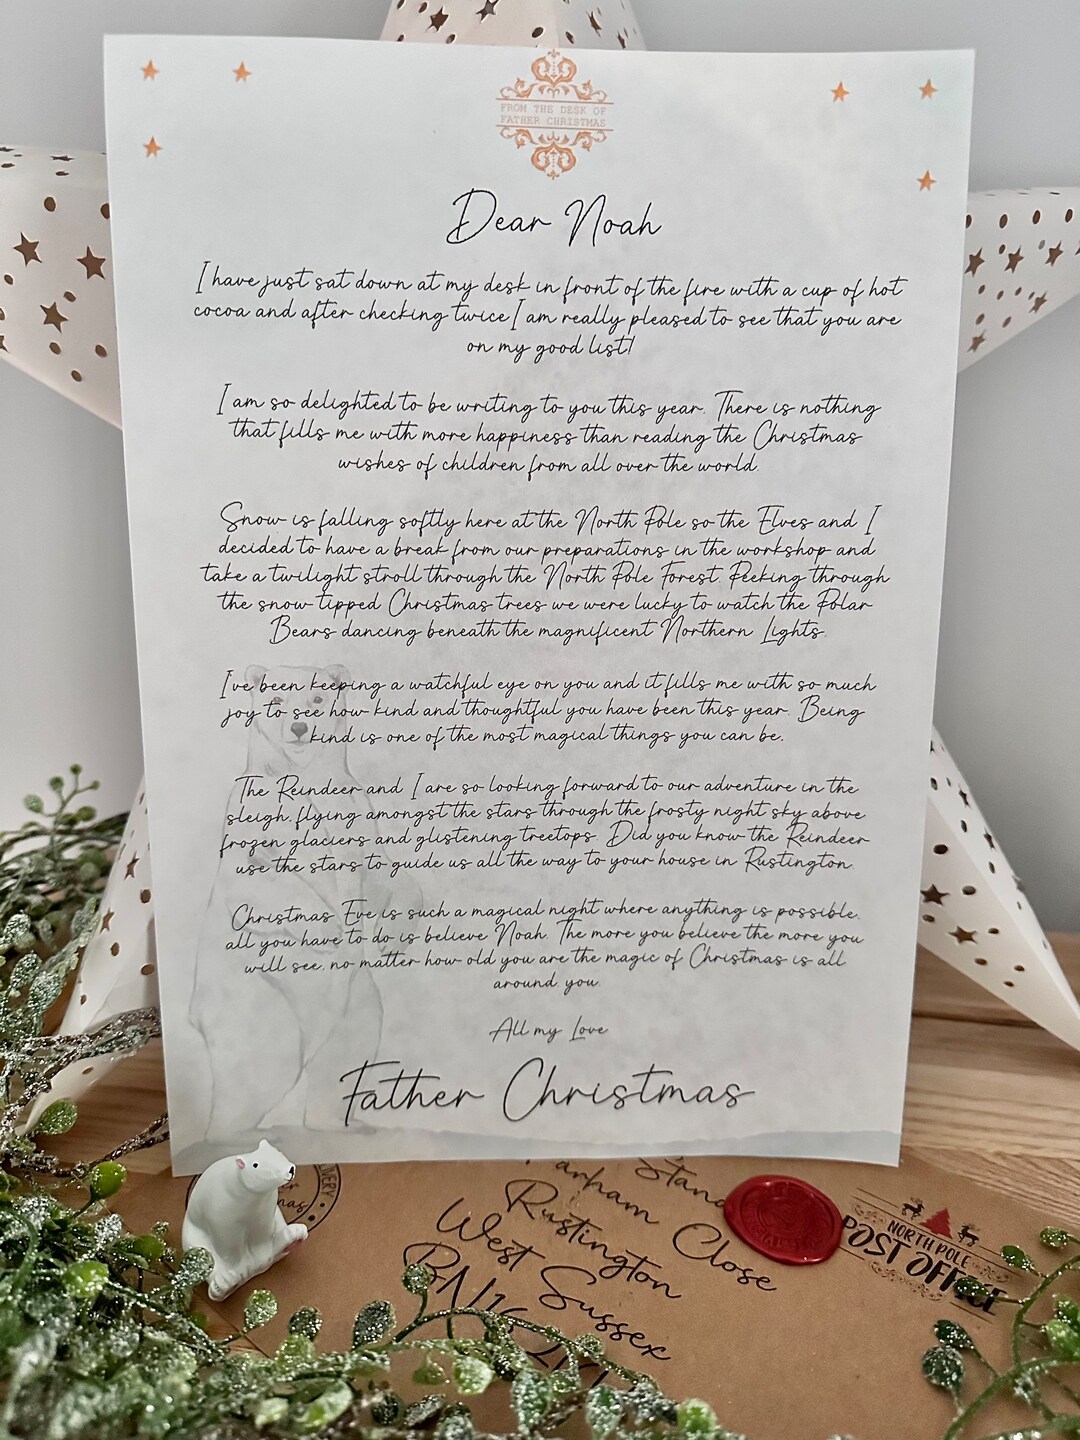 FROM THE DESK OF
FATHER CHRISTMAS
Dear Noah
I have just sat down at my desk in front of the fire with a cup of hot
cocoa and after checking twice I am really pleased to see that you are
on my good list!
I am so delighted to be writing to you this year. There is nothing
that fills me with more happiness than reading the Christmas
wishes of children from all over the world.
Snow is falling softly here at the North Pole so the Elves and I
decided to have a break from our preparations in the workshop and
take a twilight stroll through the North Pole Forest. Peeking through
the snow tipped Christmas trees we were lucky to watch the Polar
Bears dancing beneath the magnificent Northern Lights.
I've been keeping a watchful eye on you and it fills me with so much
joy to see how kind and thoughtful you have been this year. Being
kind is one of the most magical things you can be.
The Reindeer and I are so looking forward to our adventure in the
sleigh, flying amongst the stars through the frosty night sky above
frozen glaciers and glistening treetops. Did you know the Reindeer
use the stars to guide us all the way to your house in Rustington.
Christmas Eve is such a magical night where anything is possible,
all you have to do is believe Noah. The more you believe the more you
will see, no matter how old you are the magic of Christmas is all
around you.
All my Love
Father Christmas
Close
Rustington
West Sussex
NORTH POLE
POST OFFICE